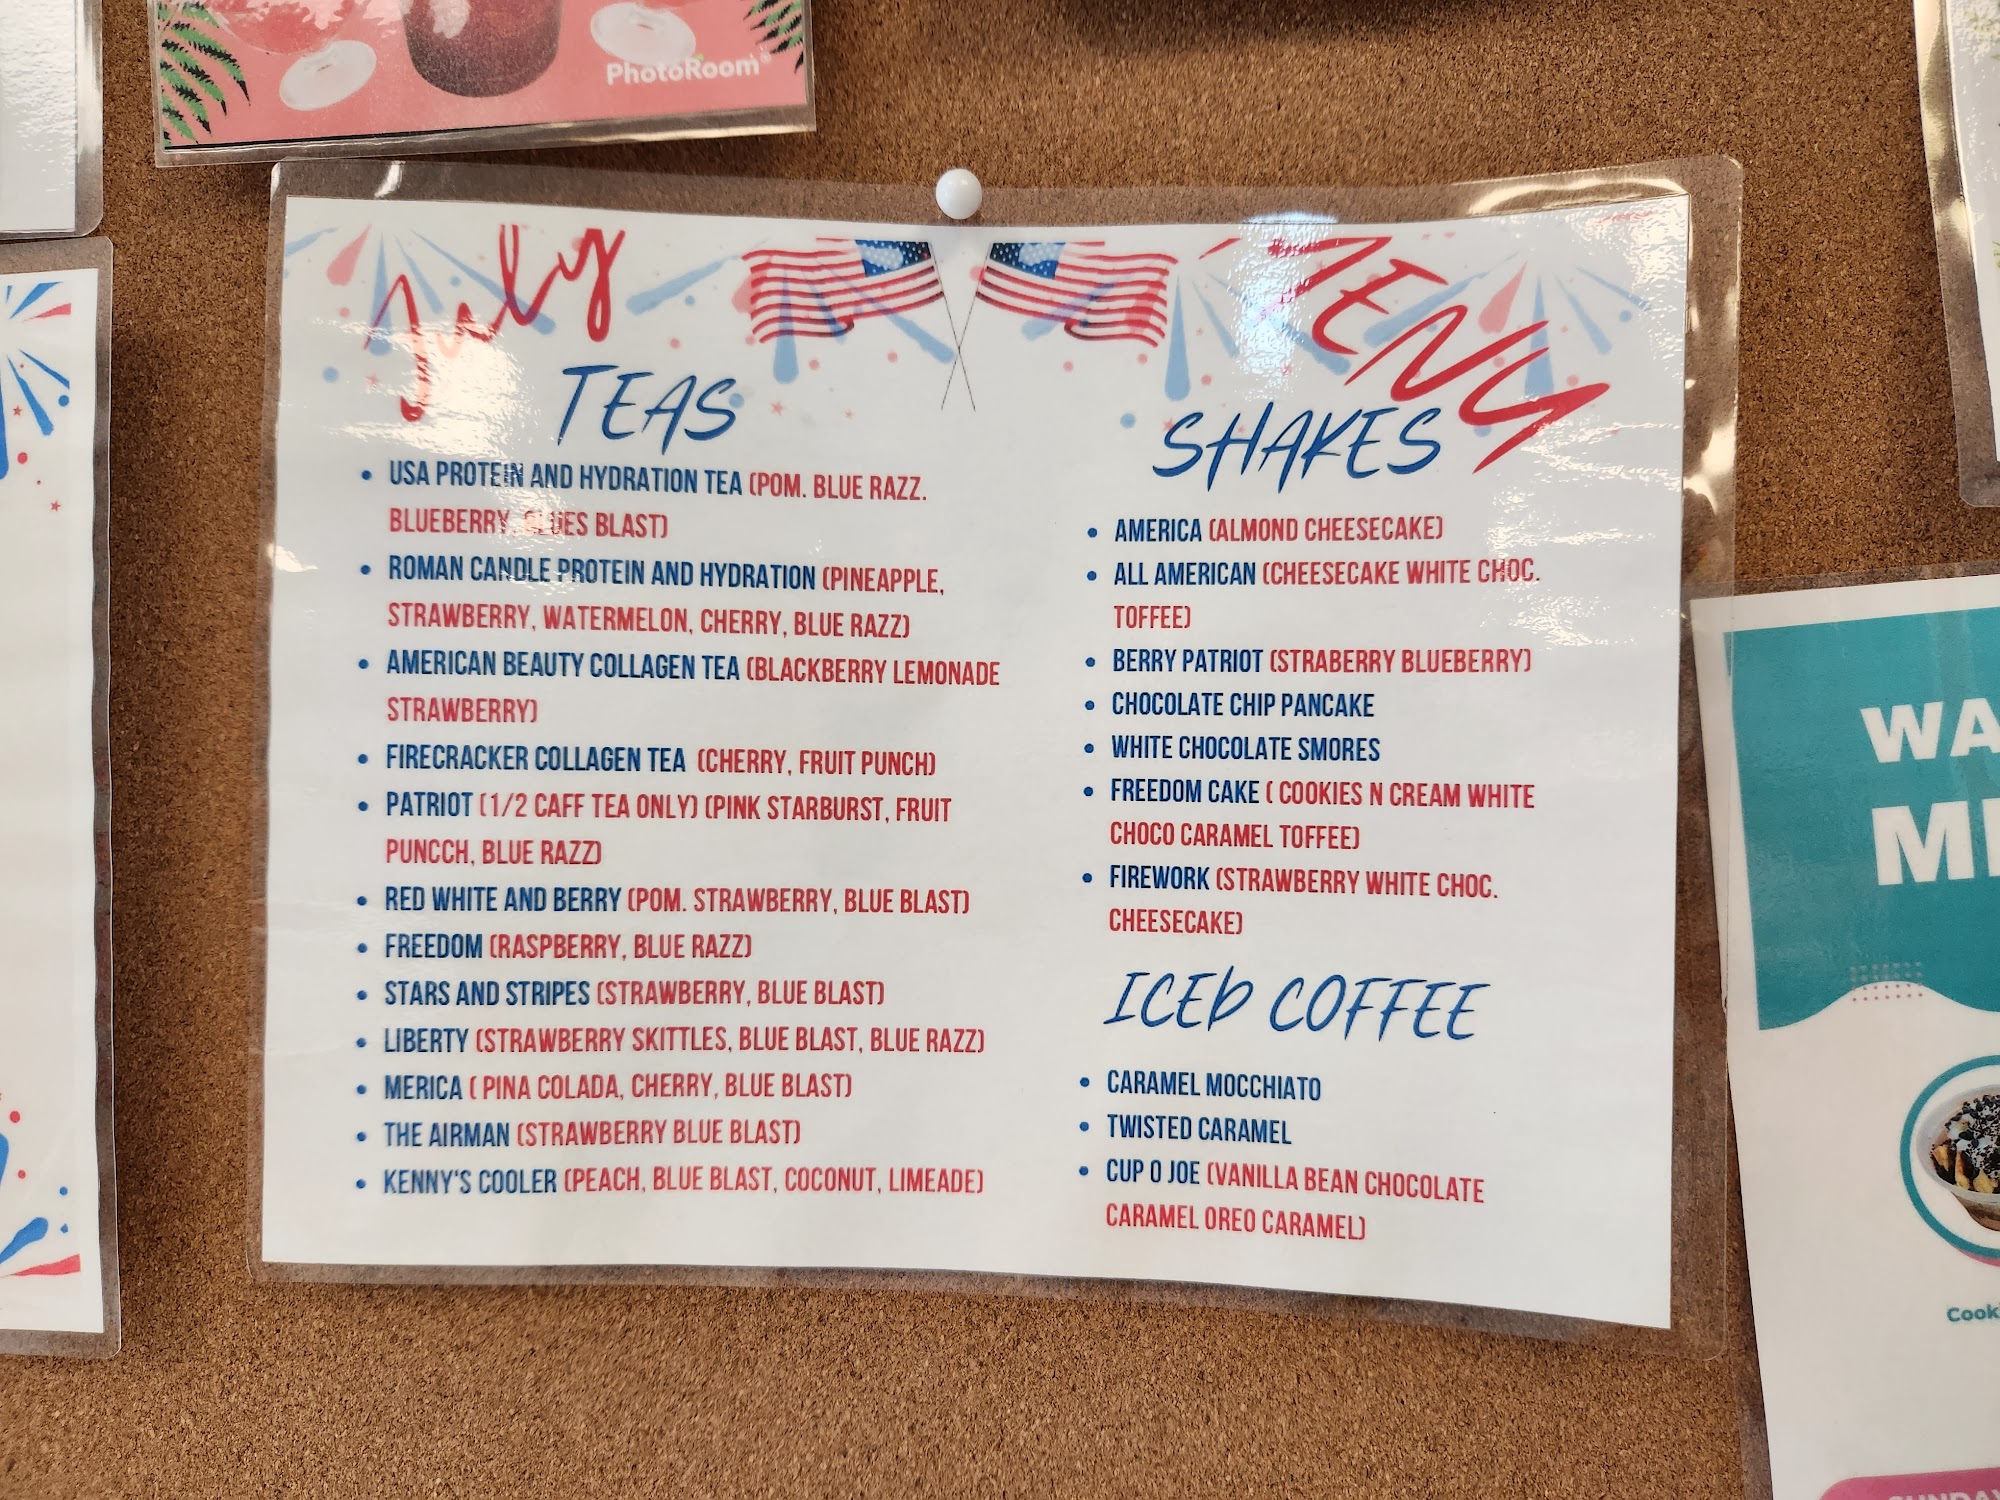 PhotoRoom
July
MENU
TEAS
• USA PROTEIN AND HYDRATION TEA (POM. BLUE RAZZ.
BLUEBERRY, BLUES BLAST)
• ROMAN CANDLE PROTEIN AND HYDRATION (PINEAPPLE,
STRAWBERRY, WATERMELON, CHERRY, BLUE RAZZ)
• AMERICAN BEAUTY COLLAGEN TEA (BLACKBERRY LEMONADE
STRAWBERRY)
• FIRECRACKER COLLAGEN TEA (CHERRY, FRUIT PUNCH)
• PATRIOT (1/2 CAFF TEA ONLY) (PINK STARBURST, FRUIT
PUNCCH, BLUE RAZZ)
• RED WHITE AND BERRY (POM. STRAWBERRY, BLUE BLAST)
• FREEDOM (RASPBERRY, BLUE RAZZ)
• STARS AND STRIPES (STRAWBERRY, BLUE BLAST)
• LIBERTY (STRAWBERRY SKITTLES, BLUE BLAST, BLUE RAZZ)
• MERICA ( PINA COLADA, CHERRY, BLUE BLAST)
• THE AIRMAN (STRAWBERRY BLUE BLAST)
• KENNY'S COOLER (PEACH, BLUE BLAST, COCONUT, LIMEADE)
SHAKES
• AMERICA (ALMOND CHEESECAKE)
• ALL AMERICAN (CHEESECAKE WHITE CHOC.
TOFFEE)
• BERRY PATRIOT (STRABERRY BLUEBERRY)
• CHOCOLATE CHIP PANCAKE
• WHITE CHOCOLATE SMORES
• FREEDOM CAKE ( COOKIES N CREAM WHITE
CHOCO CARAMEL TOFFEE)
• FIREWORK (STRAWBERRY WHITE CHOC.
CHEESECAKE)
ICED COFFEE
• CARAMEL MOCCHIATO
• TWISTED CARAMEL
• CUP O JOE (VANILLA BEAN CHOCOLATE
CARAMEL OREO CARAMEL)
WA
Cook